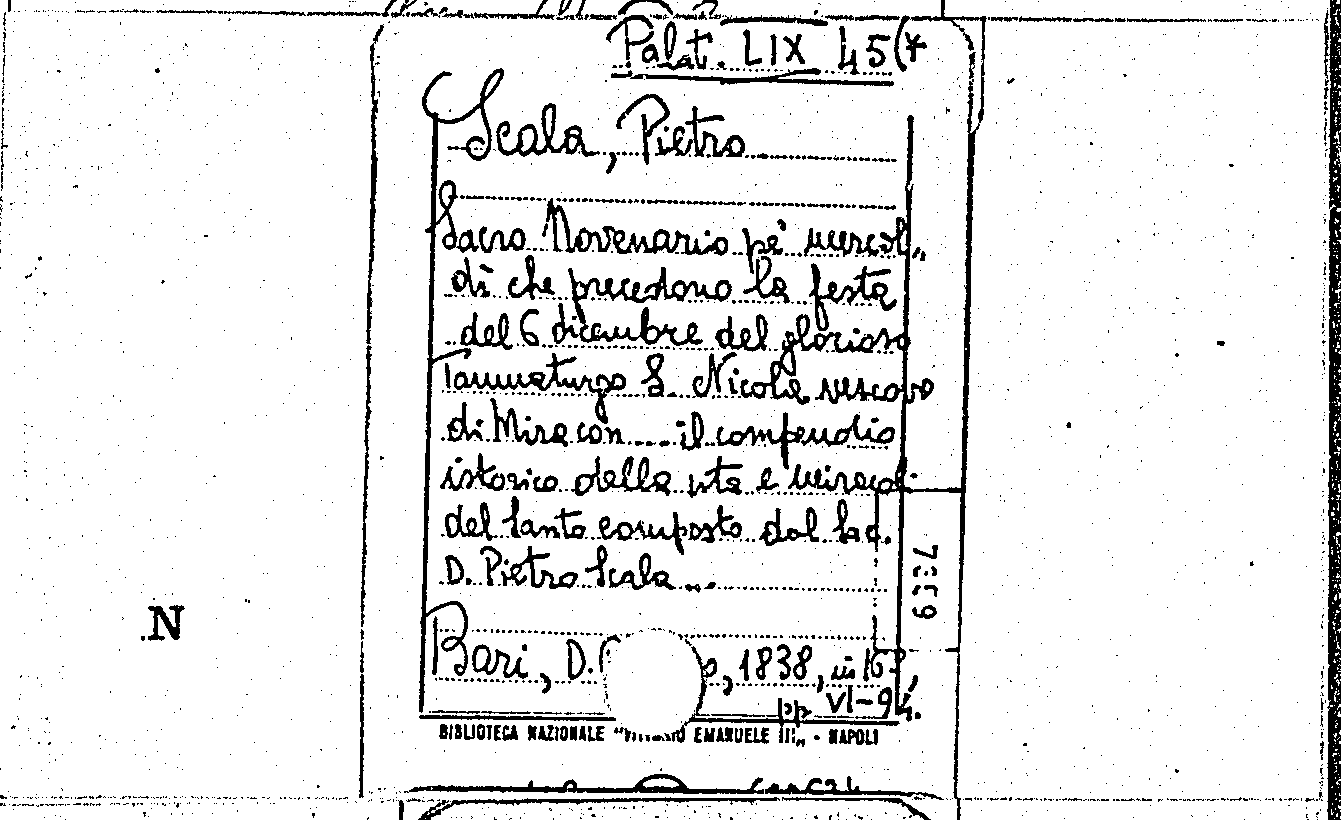 Palat. LIX 45(*
Scala, Pietro
Sacro Novenario pe' mercol„
dì che precedono la festa
del 6 dicembre del glorioso
Taumaturgo S. Nicola vescovo
di Mira con .... il compendio
istorico della vita e miracoli
del Santo composto dal Sac.
D. Pietro Scala ...
N
Bari, D. 1838, in 16°,
pp VI-94.
BIBLIOTECA NAZIONALE "VITTORIO EMANUELE III„ - NAPOLI